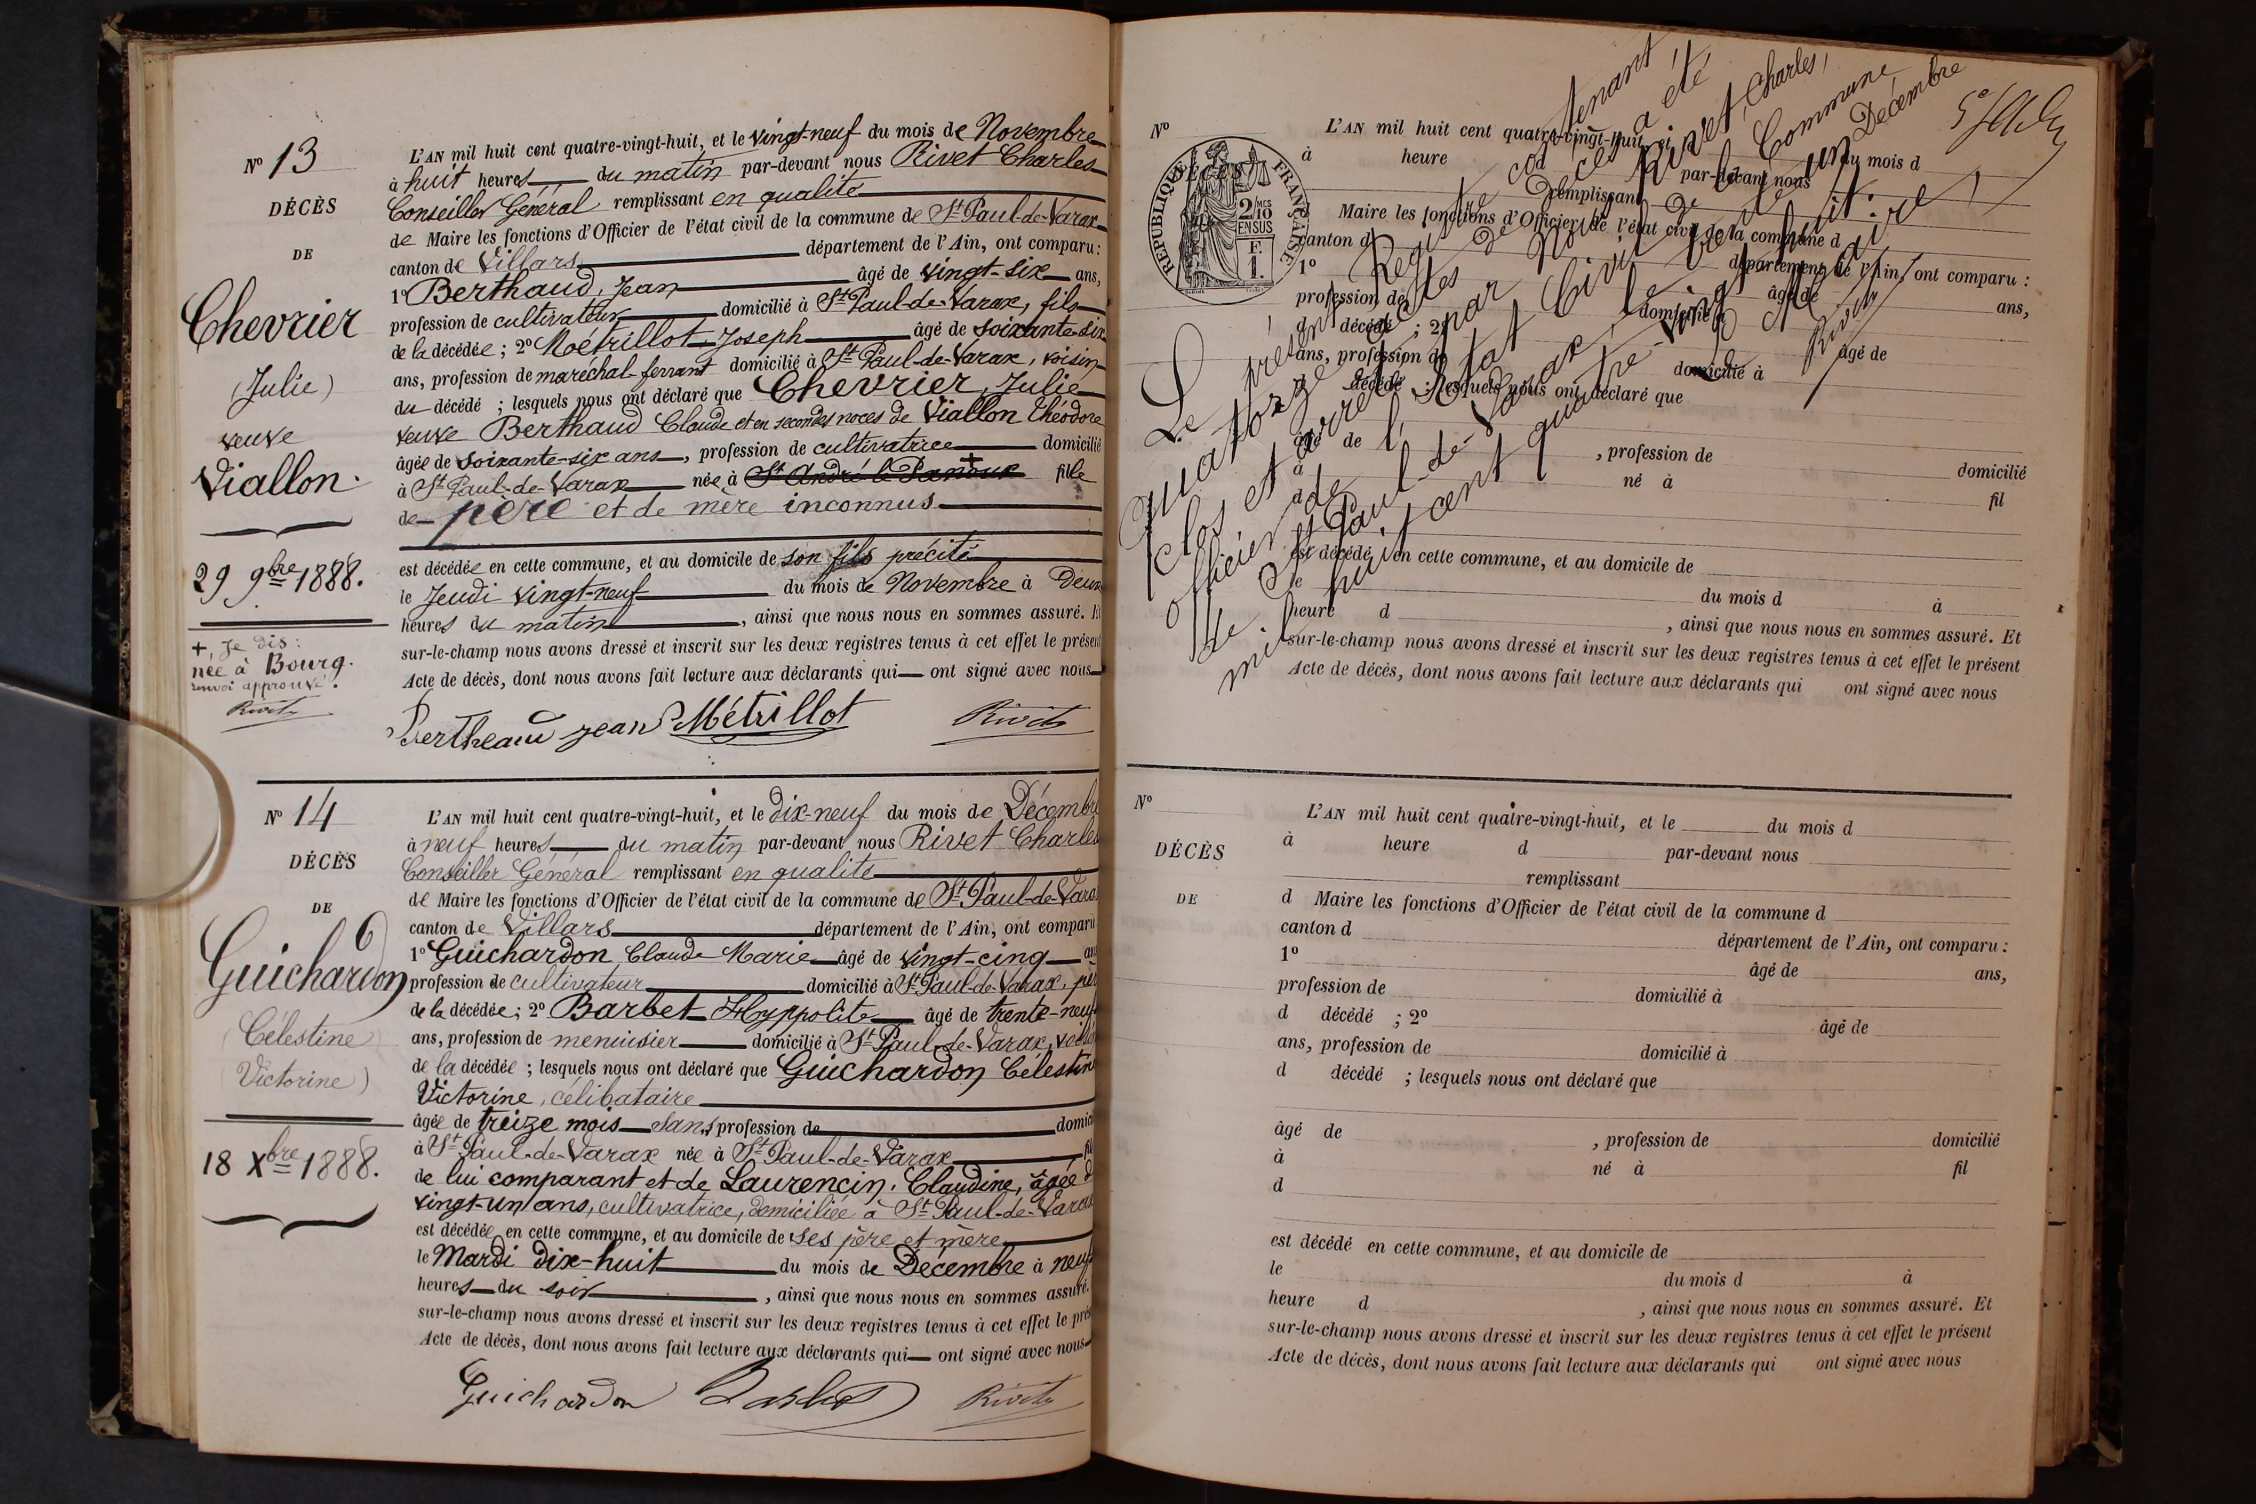 N° 13
DÉCÈS
DE
Chevrier
(Julie)
veuve
Viallon.
29 9bre 1888.
+, Je dis:
née à Bourg.
renvoi approuvé.
Rivet
L'AN mil huit cent quatre-vingt-huit, et le vingt-neuf du mois de Novembre
à huit heures du matin par-devant nous Rivet Charles
Conseiller Général remplissant en qualité
de Maire les fonctions d'Officier de l'état civil de la commune de St Paul-de-Varax
canton de Villars département de l'Ain, ont comparu:
1° Berthaud, Jean âgé de vingt-six ans,
profession de cultivateur domicilié à St Paul-de-Varax, fils
de la décédée; 2° Métrillot, Joseph âgé de soixante-six
ans, profession de maréchal-ferrant domicilié à St Paul-de-Varax, voisin
du décédé; lesquels nous ont déclaré que Chevrier, Julie
veuve Berthaud Claude et en secondes noces de Viallon Théodore
âgée de soixante-six ans, profession de cultivatrice domicilié
à St Paul-de-Varax née à St André le Panoux + fille
de père et de mère inconnus
est décédée en cette commune, et au domicile de son fils précité
le Jeudi vingt-neuf du mois de Novembre à Deux
heures du matin, ainsi que nous nous en sommes assuré. Et
sur-le-champ nous avons dressé et inscrit sur les deux registres tenus à cet effet le présent
Acte de décès, dont nous avons fait lecture aux déclarants qui ont signé avec nous
Bertheaud jean Métrillot Rivet
N° 14
DÉCÈS
DE
Guichardon
(Célestine
Victorine)
18 Xbre 1888.
L'AN mil huit cent quatre-vingt-huit, et le dix-neuf du mois de Décembre
à neuf heures du matin par-devant nous Rivet Charles
Conseiller Général remplissant en qualité
de Maire les fonctions d'Officier de l'état civil de la commune de St Paul-de-Varax
canton de Villars département de l'Ain, ont comparu
1° Guichardon Claude Marie âgé de vingt-cinq ans
profession de cultivateur domicilié à St Paul-de-Varax, père
de la décédée; 2° Barbet Hyppolite âgé de trente-neuf
ans, profession de menuisier domicilié à St Paul-de-Varax, voisin
de la décédée; lesquels nous ont déclaré que Guichardon Célestine
Victorine, célibataire
âgée de treize mois sans profession de domicilié
à St Paul-de-Varax née à St Paul-de-Varax fille
de lui comparant et de Laurencin, Claudine, âgée de
vingt-un ans, cultivatrice, domiciliée à St Paul-de-Varax
est décédée en cette commune, et au domicile de ses père et mère
le Mardi dix-huit du mois de Décembre à neuf
heures du soir, ainsi que nous nous en sommes assuré.
sur-le-champ nous avons dressé et inscrit sur les deux registres tenus à cet effet le présent
Acte de décès, dont nous avons fait lecture aux déclarants qui ont signé avec nous
Guichardon Barbet Rivet
N°
RÉPUBLIQUE FRANÇAISE
2/10 MES
EN SUS
F.
1.
L'AN mil huit cent quatre-vingt-huit, et le du mois d
à heure d par-devant nous
remplissant
Maire les fonctions d'Officier de l'état civil de la commune d
canton d département de l'Ain, ont comparu:
1° âgé de ans,
profession de domicilié à
d décédé; 2° âgé de
ans, profession de domicilié à
d décédé; lesquels nous ont déclaré que
âgé de, profession de domicilié
à né à fil
d
est décédé en cette commune, et au domicile de
le du mois d à
heure d, ainsi que nous nous en sommes assuré. Et
sur-le-champ nous avons dressé et inscrit sur les deux registres tenus à cet effet le présent
Acte de décès, dont nous avons fait lecture aux déclarants qui ont signé avec nous
Le présent Registre contenant
quatorze actes de décès a été
clos et arrêté par Nous Rivet Charles,
officier de l'Etat Civil de la Commune
de St Paul-de-Varax, le trente un Décembre
mil huit cent quatre-vingt huit.
Le Maire,
Rivet
N°
DÉCÈS
DE
L'AN mil huit cent quatre-vingt-huit, et le du mois d
à heure d par-devant nous
remplissant
d Maire les fonctions d'Officier de l'état civil de la commune d
canton d département de l'Ain, ont comparu:
1° âgé de ans,
profession de domicilié à
d décédé; 2° âgé de
ans, profession de domicilié à
d décédé; lesquels nous ont déclaré que
âgé de, profession de domicilié
à né à fil
d
est décédé en cette commune, et au domicile de
le du mois d à
heure d, ainsi que nous nous en sommes assuré. Et
sur-le-champ nous avons dressé et inscrit sur les deux registres tenus à cet effet le présent
Acte de décès, dont nous avons fait lecture aux déclarants qui ont signé avec nous